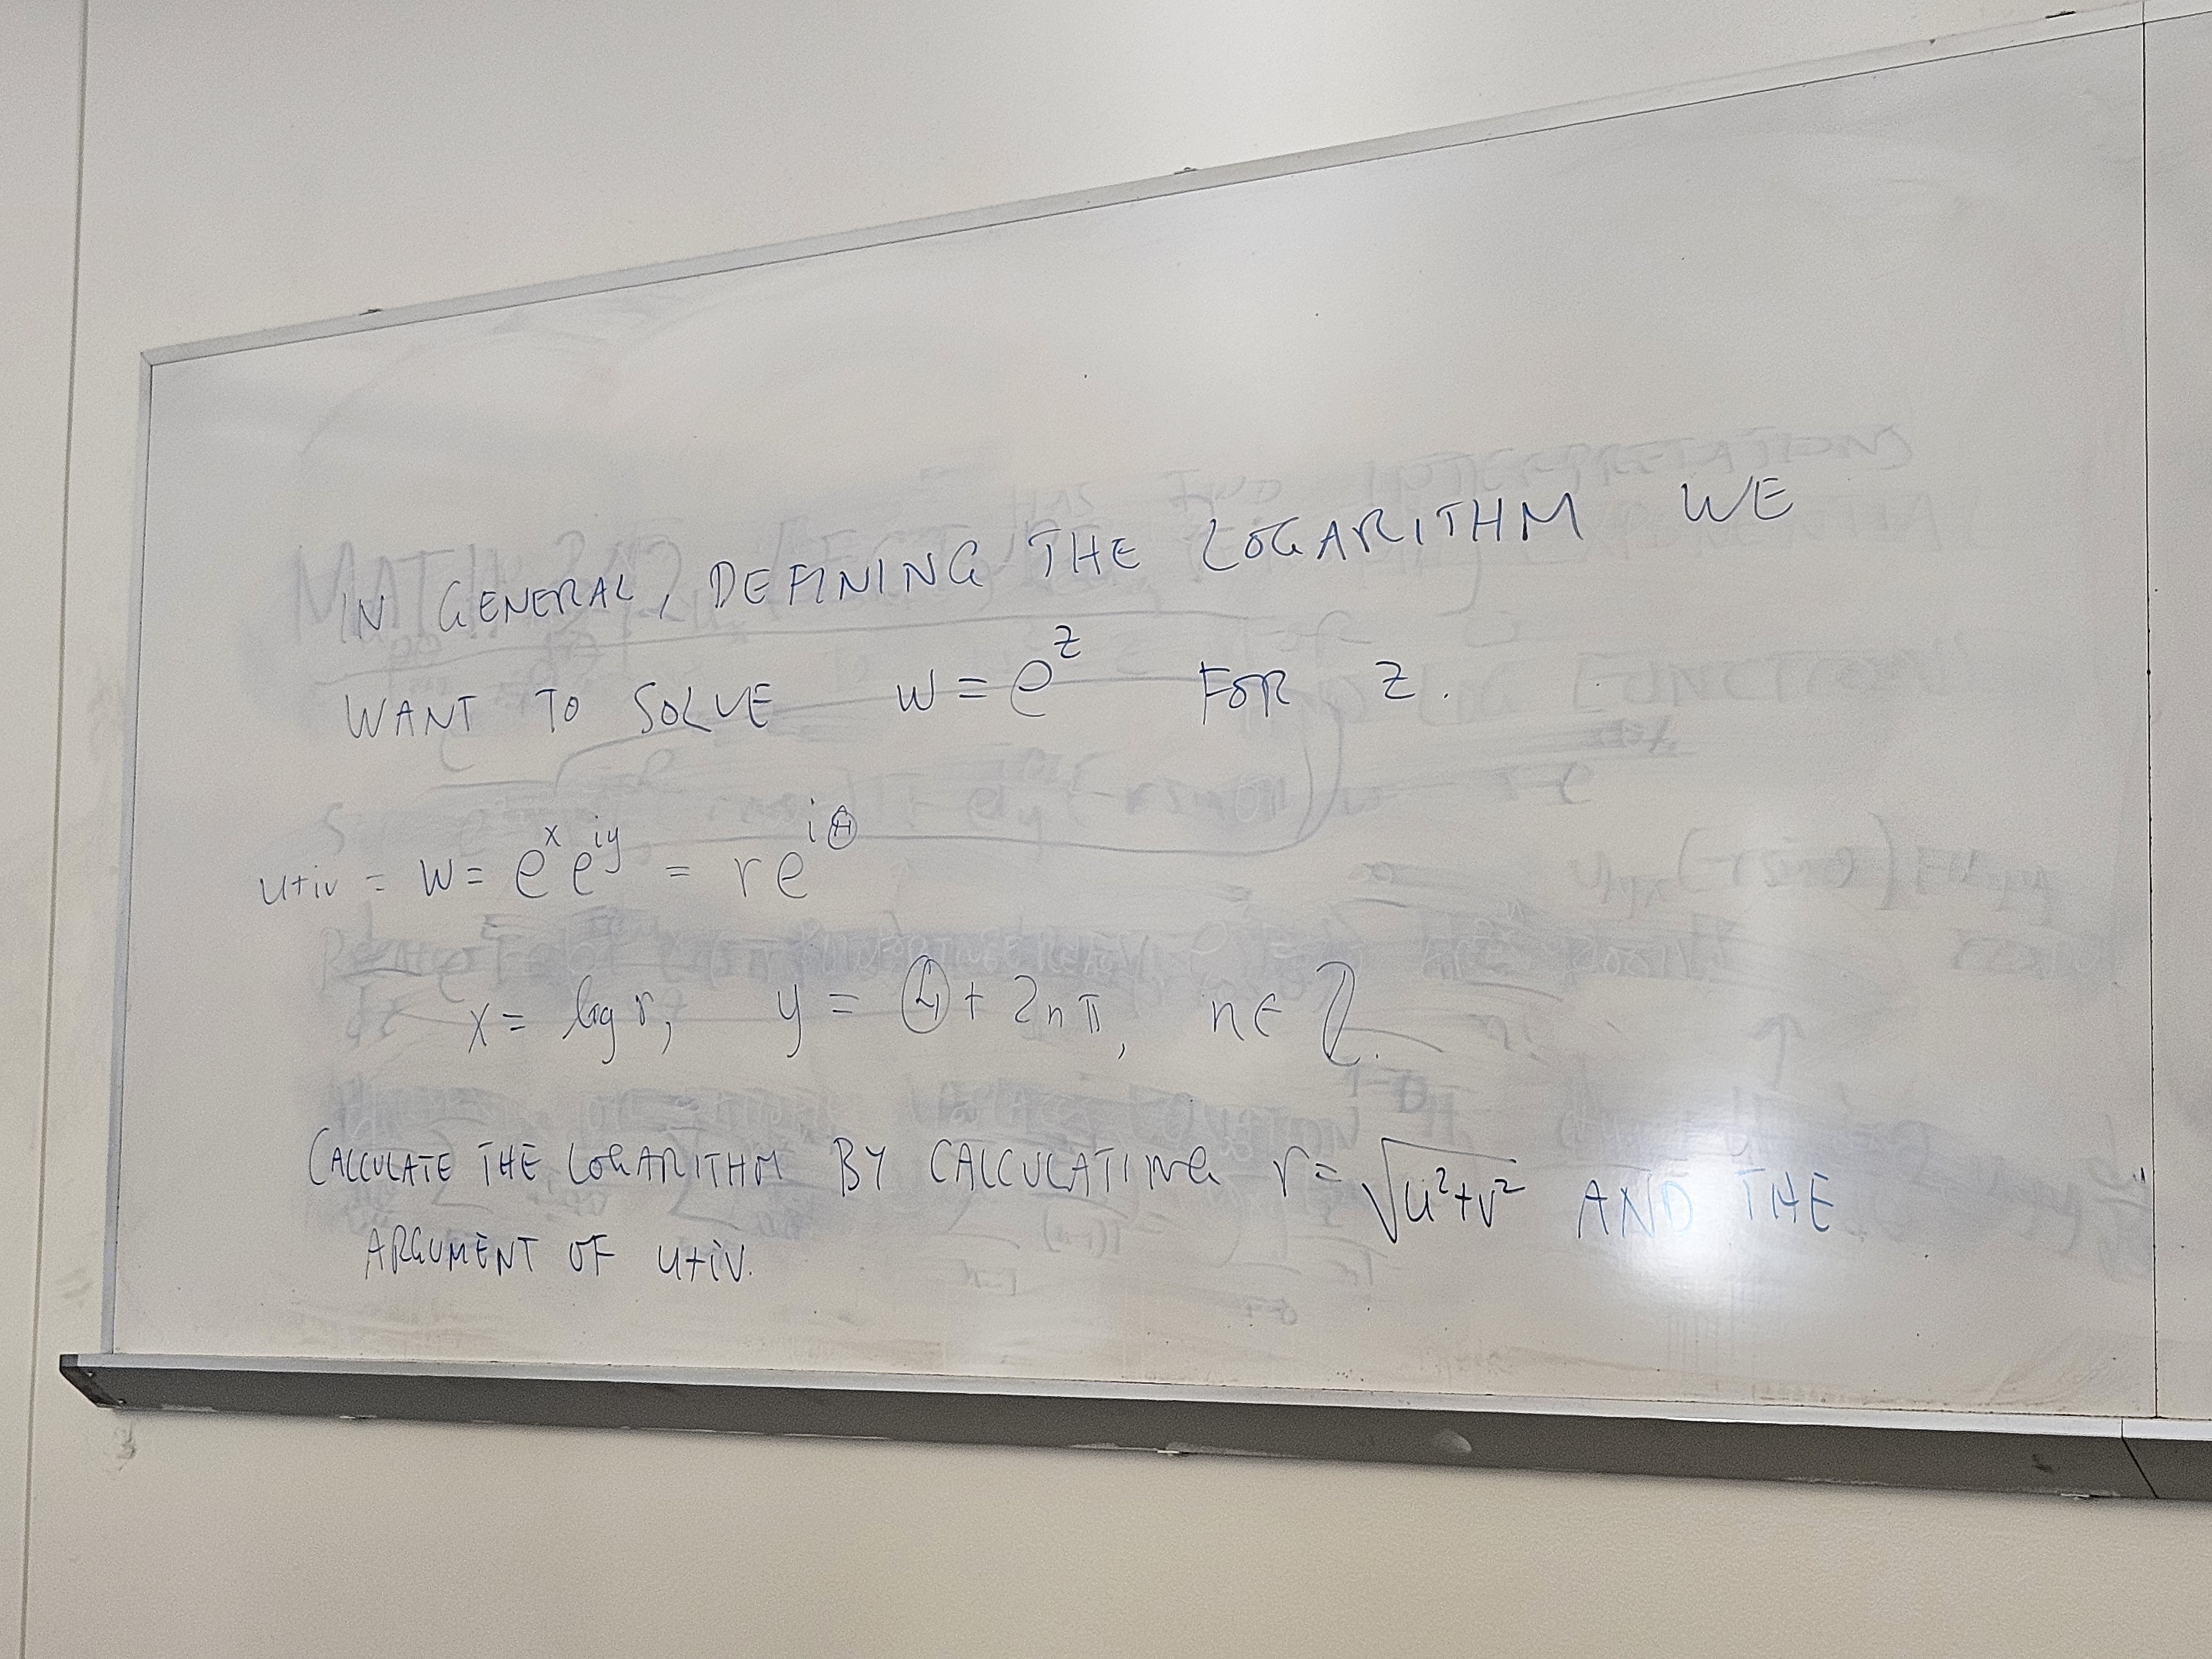 IN GENERAL, DEFINING THE LOGARITHM WE
WANT TO SOLVE w = e^z FOR z.
u+iv = w = e^x e^{iy} = r e^{iΘ}
x = log r, y = Θ + 2nπ, n ∈ ℤ.
CALCULATE THE LOGARITHM BY CALCULATING r = √(u²+v²) AND THE
ARGUMENT OF u+iv.